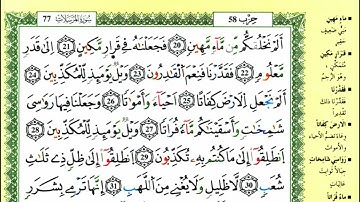 77 سورة المرسلات حزب 58
أَلَمْ نَخْلُقكُّم مِّن مَّآءٍ مَّهِينٍ ⟨20⟩ فَجَعَلْنَٰهُ فِي قَرَارٍ مَّكِينٍ ⟨21⟩ إِلَىٰ قَدَرٍ
مَّعْلُومٍ ⟨22⟩ فَقَدَرْنَا فَنِعْمَ ٱلْقَٰدِرُونَ ⟨23⟩ وَيْلٌ يَوْمَئِذٍ لِّلْمُكَذِّبِينَ ⟨24⟩
أَلَمْ نَجْعَلِ ٱلْأَرْضَ كِفَاتًا ⟨25⟩ أَحْيَآءً وَأَمْوَٰتًا ⟨26⟩ وَجَعَلْنَا فِيهَا رَوَٰسِيَ
شَٰمِخَٰتٍ وَأَسْقَيْنَٰكُم مَّآءً فُرَاتًا ⟨27⟩ وَيْلٌ يَوْمَئِذٍ لِّلْمُكَذِّبِينَ ⟨28⟩
ٱنطَلِقُوٓا۟ إِلَىٰ مَا كُنتُم بِهِۦ تُكَذِّبُونَ ⟨29⟩ ٱنطَلِقُوٓا۟ إِلَىٰ ظِلٍّ ذِي ثَلَٰثِ
شُعَبٍ ⟨30⟩ لَّا ظَلِيلٍ وَلَا يُغْنِي مِنَ ٱللَّهَبِ ⟨31⟩ إِنَّهَا تَرْمِي بِشَرَرٍ
ماء مهين
قرار مكين
فقدرنا
الأرض كفاتا
رواسي شامخات
ماء فراتا